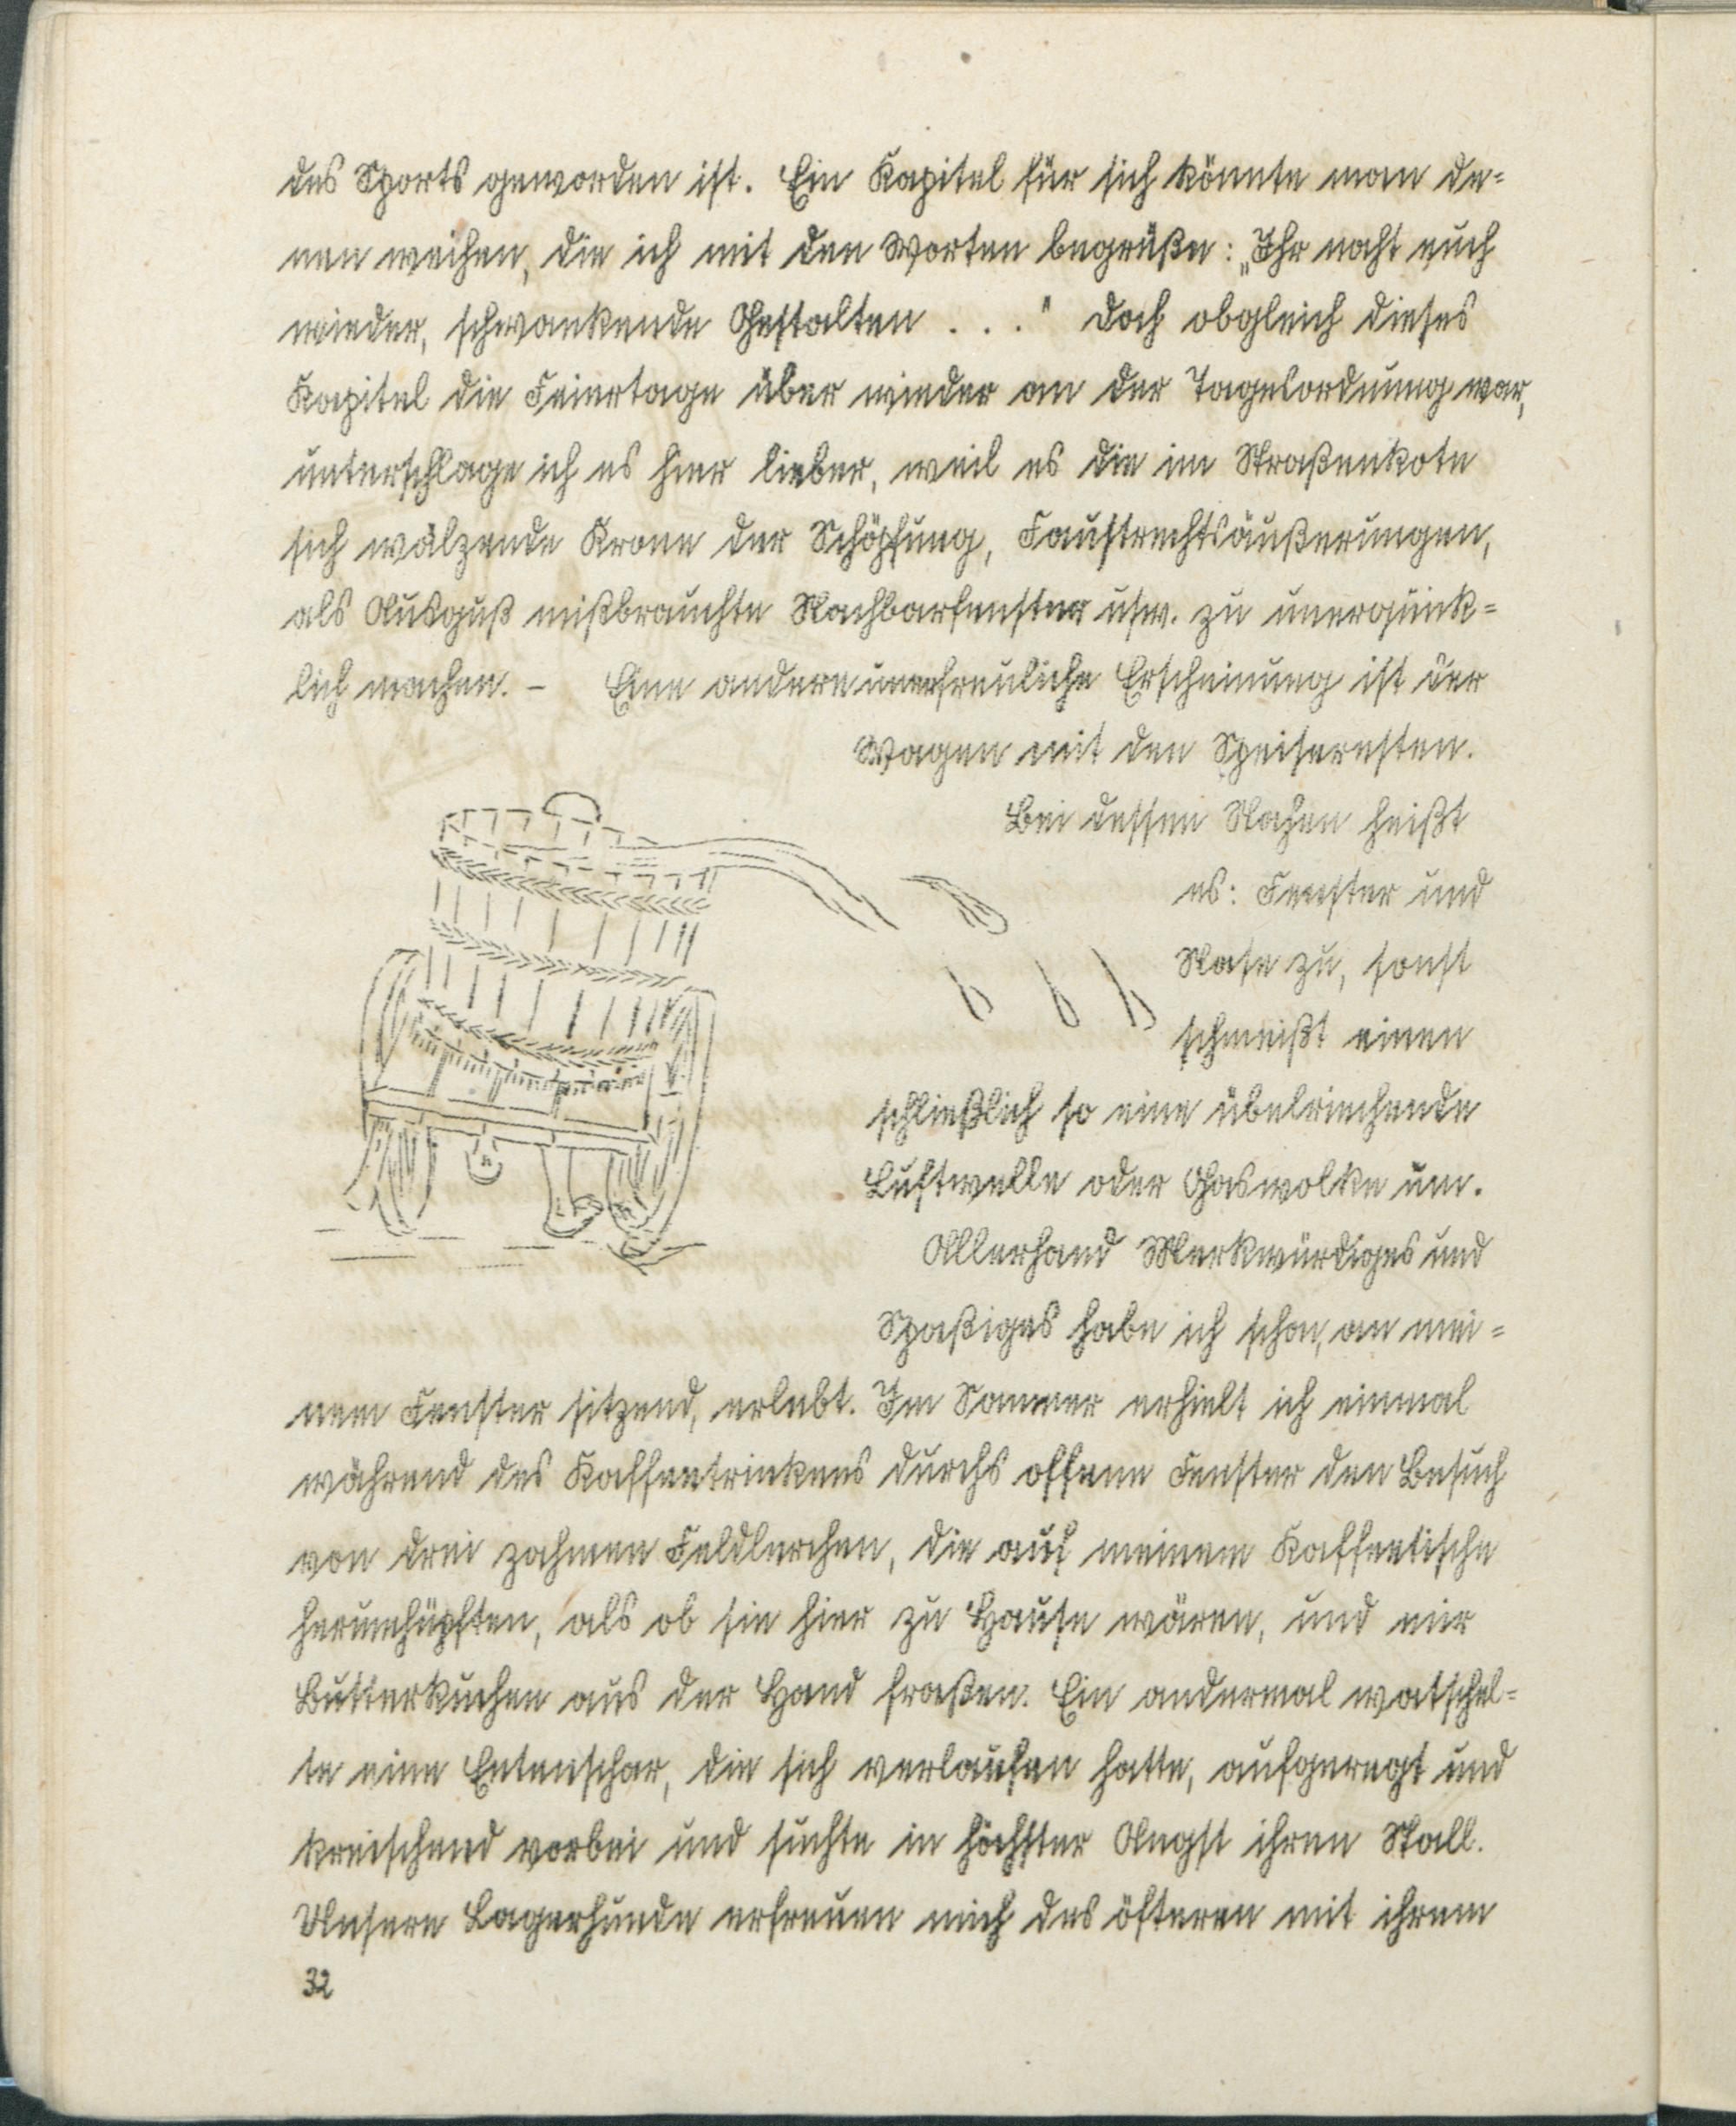 des Sports geworden ist. Ein Kapitel für sich könnte man de-
nen weihen, die ich mit den Worten begrüße: „Ihr naht euch
wieder, schwankende Gestalten . . ." Doch obgleich dieses
Kapitel die Feiertage über wieder an der Tagesordnung war,
unterschlage ich es hier lieber, weil es die im Straßenkote
sich wälzende Krone der Schöpfung, Faustrechtsäußerungen,
als Ausguß mißbrauchte Nachbarfenster usw. zu unerquick-
lich machen. – Eine andere unerfreuliche Erscheinung ist der
Wagen mit den Speiseresten.
Bei dessen Nahen heißt
es: Fenster und
Nase zu, sonst
schmeißt einen
schließlich so eine übelriechende
Luftwelle oder Gaswolke um.
Allerhand Merkwürdiges und
Spaßiges habe ich schon, an mei-
nem Fenster sitzend, erlebt. Im Sommer erhielt ich einmal
während des Kaffeetrinkens durchs offene Fenster den Besuch
von drei zahmen Feldlerchen, die auf meinem Kaffeetische
herumhüpften, als ob sie hier zu Hause wären, und mir
Butterkuchen aus der Hand fraßen. Ein andermal watschel-
te eine Entenschar, die sich verlaufen hatte, aufgeregt und
kreischend vorbei und suchte in höchster Angst ihren Stall.
Unsere Lagerhunde erfreuen mich des öfteren mit ihrem
32